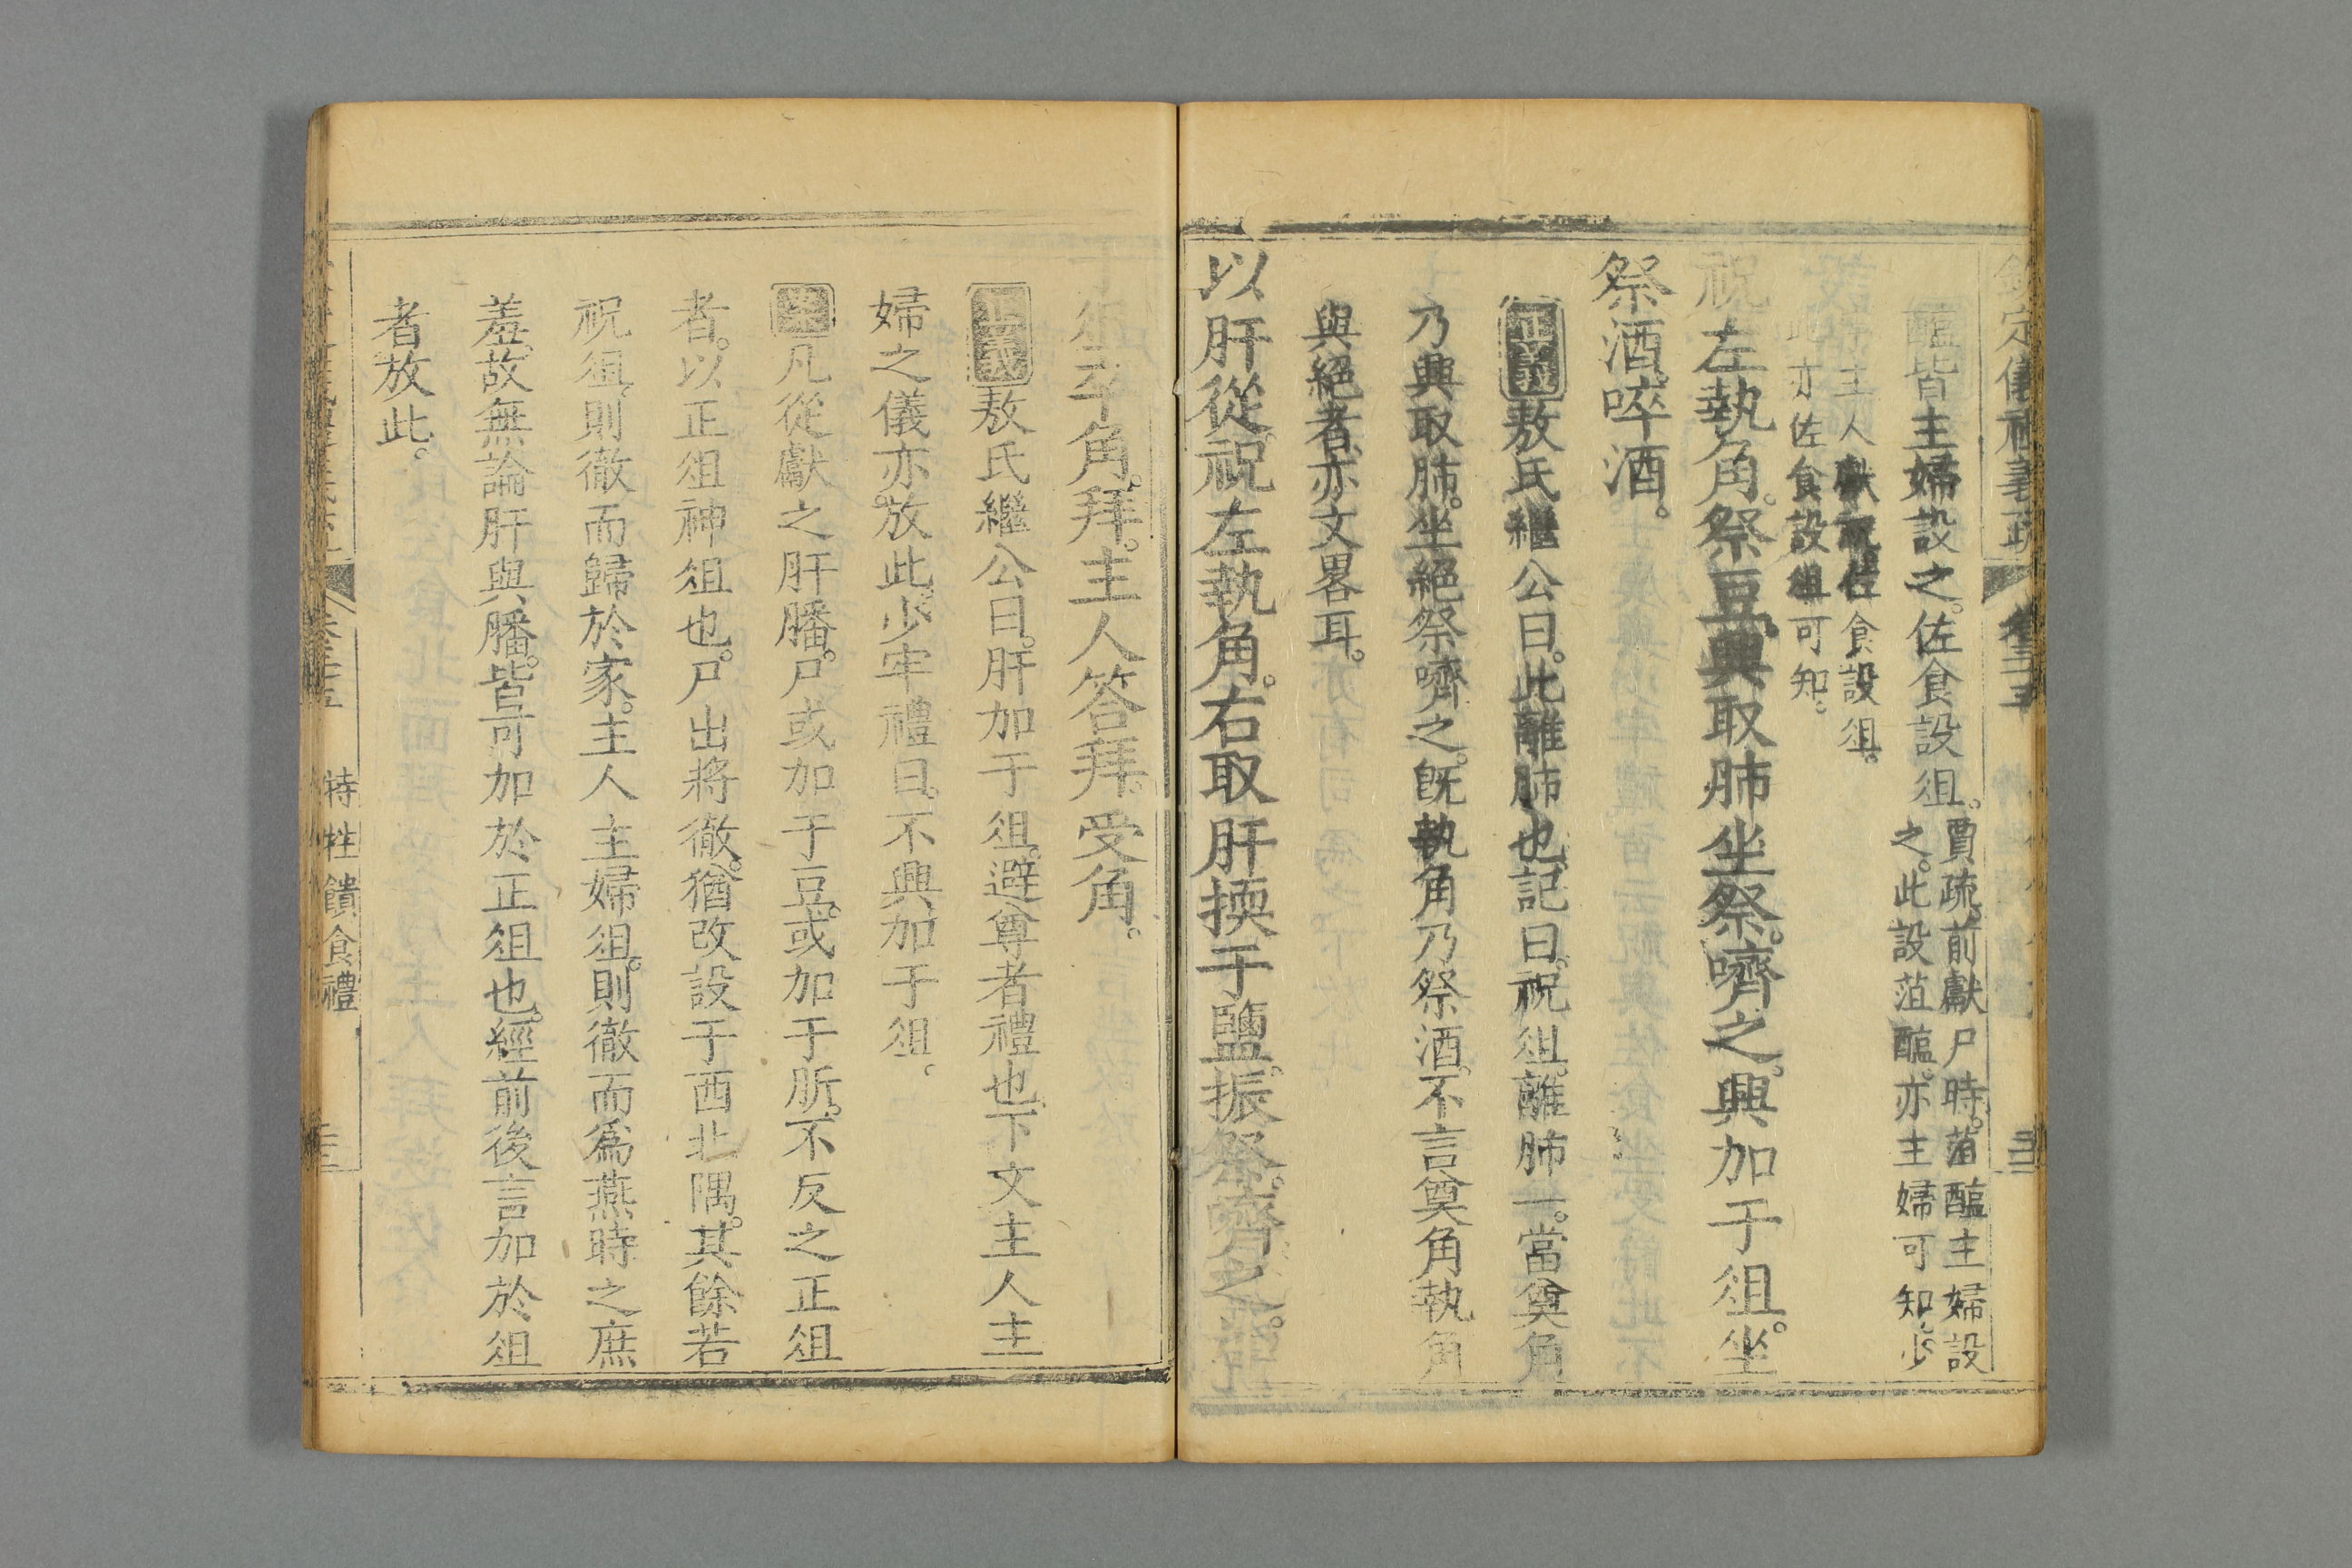 欽定儀禮義疏 卷三十五
醢皆主婦設之。佐食設俎。賈疏。前獻尸時。菹醢主婦設
之。此設菹醢。亦主婦可知。少
主人獻祝。佐食設俎。
此亦佐食設俎可知。
祝左執角。祭豆。興取肺坐祭。嚌之。興加于俎。坐
祭酒。啐酒。
正義敖氏繼公曰。此離肺也。記曰。祝俎。離肺一。當奠角
乃興取肺。坐絕祭嚌之。既執角乃祭酒。不言奠角執角
與絕者。亦文畧耳。
以肝從。祝左執角。右取肝㨎于鹽。振祭。嚌之。
卒角。拜。主人答拜。受角。
正義敖氏繼公曰。肝加于俎。避尊者禮也。下文主人主
婦之儀亦放此。少牢禮曰。不興加于俎。
案凡從獻之肝膰。尸或加于豆。或加于肵。不反之正俎
者。以正俎神俎也。尸出將徹。猶改設于西北隅。其餘若
祝俎。則徹而歸於家。主人主婦俎。則徹而爲燕時之庶
羞。故無論肝與膰。皆可加於正俎也。經前後言加於俎
者放此。
特牲饋食禮